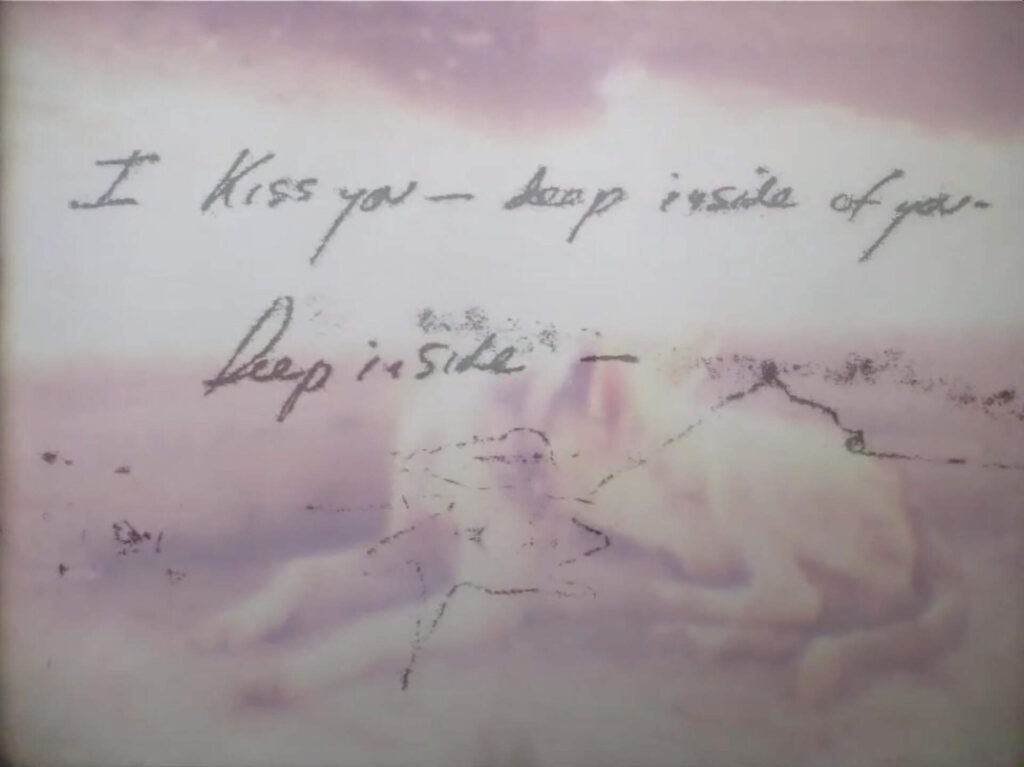 I Kiss you — deep inside of you -
Deep inside —